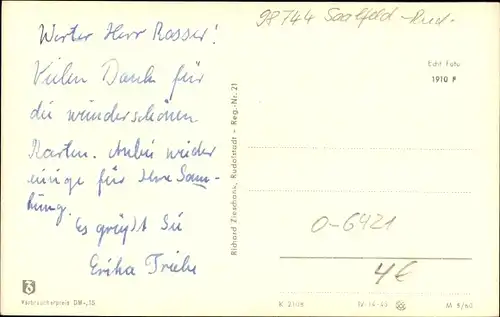 98744 Saalfeld-Rud.
Werter Herr Rosser!
Vielen Dank für
die wunderschönen
Karten. Anbei wieder
einige für Ihre Samm-
lung.
Es grüßt Sie
Erika Triebe
Echt Foto
1910 F
Richard Zieschank, Rudolstadt - Reg.-Nr. 21
O-6421
4€
Verbraucherpreis DM -,15
K 2108
IV-14-45
M 5/60